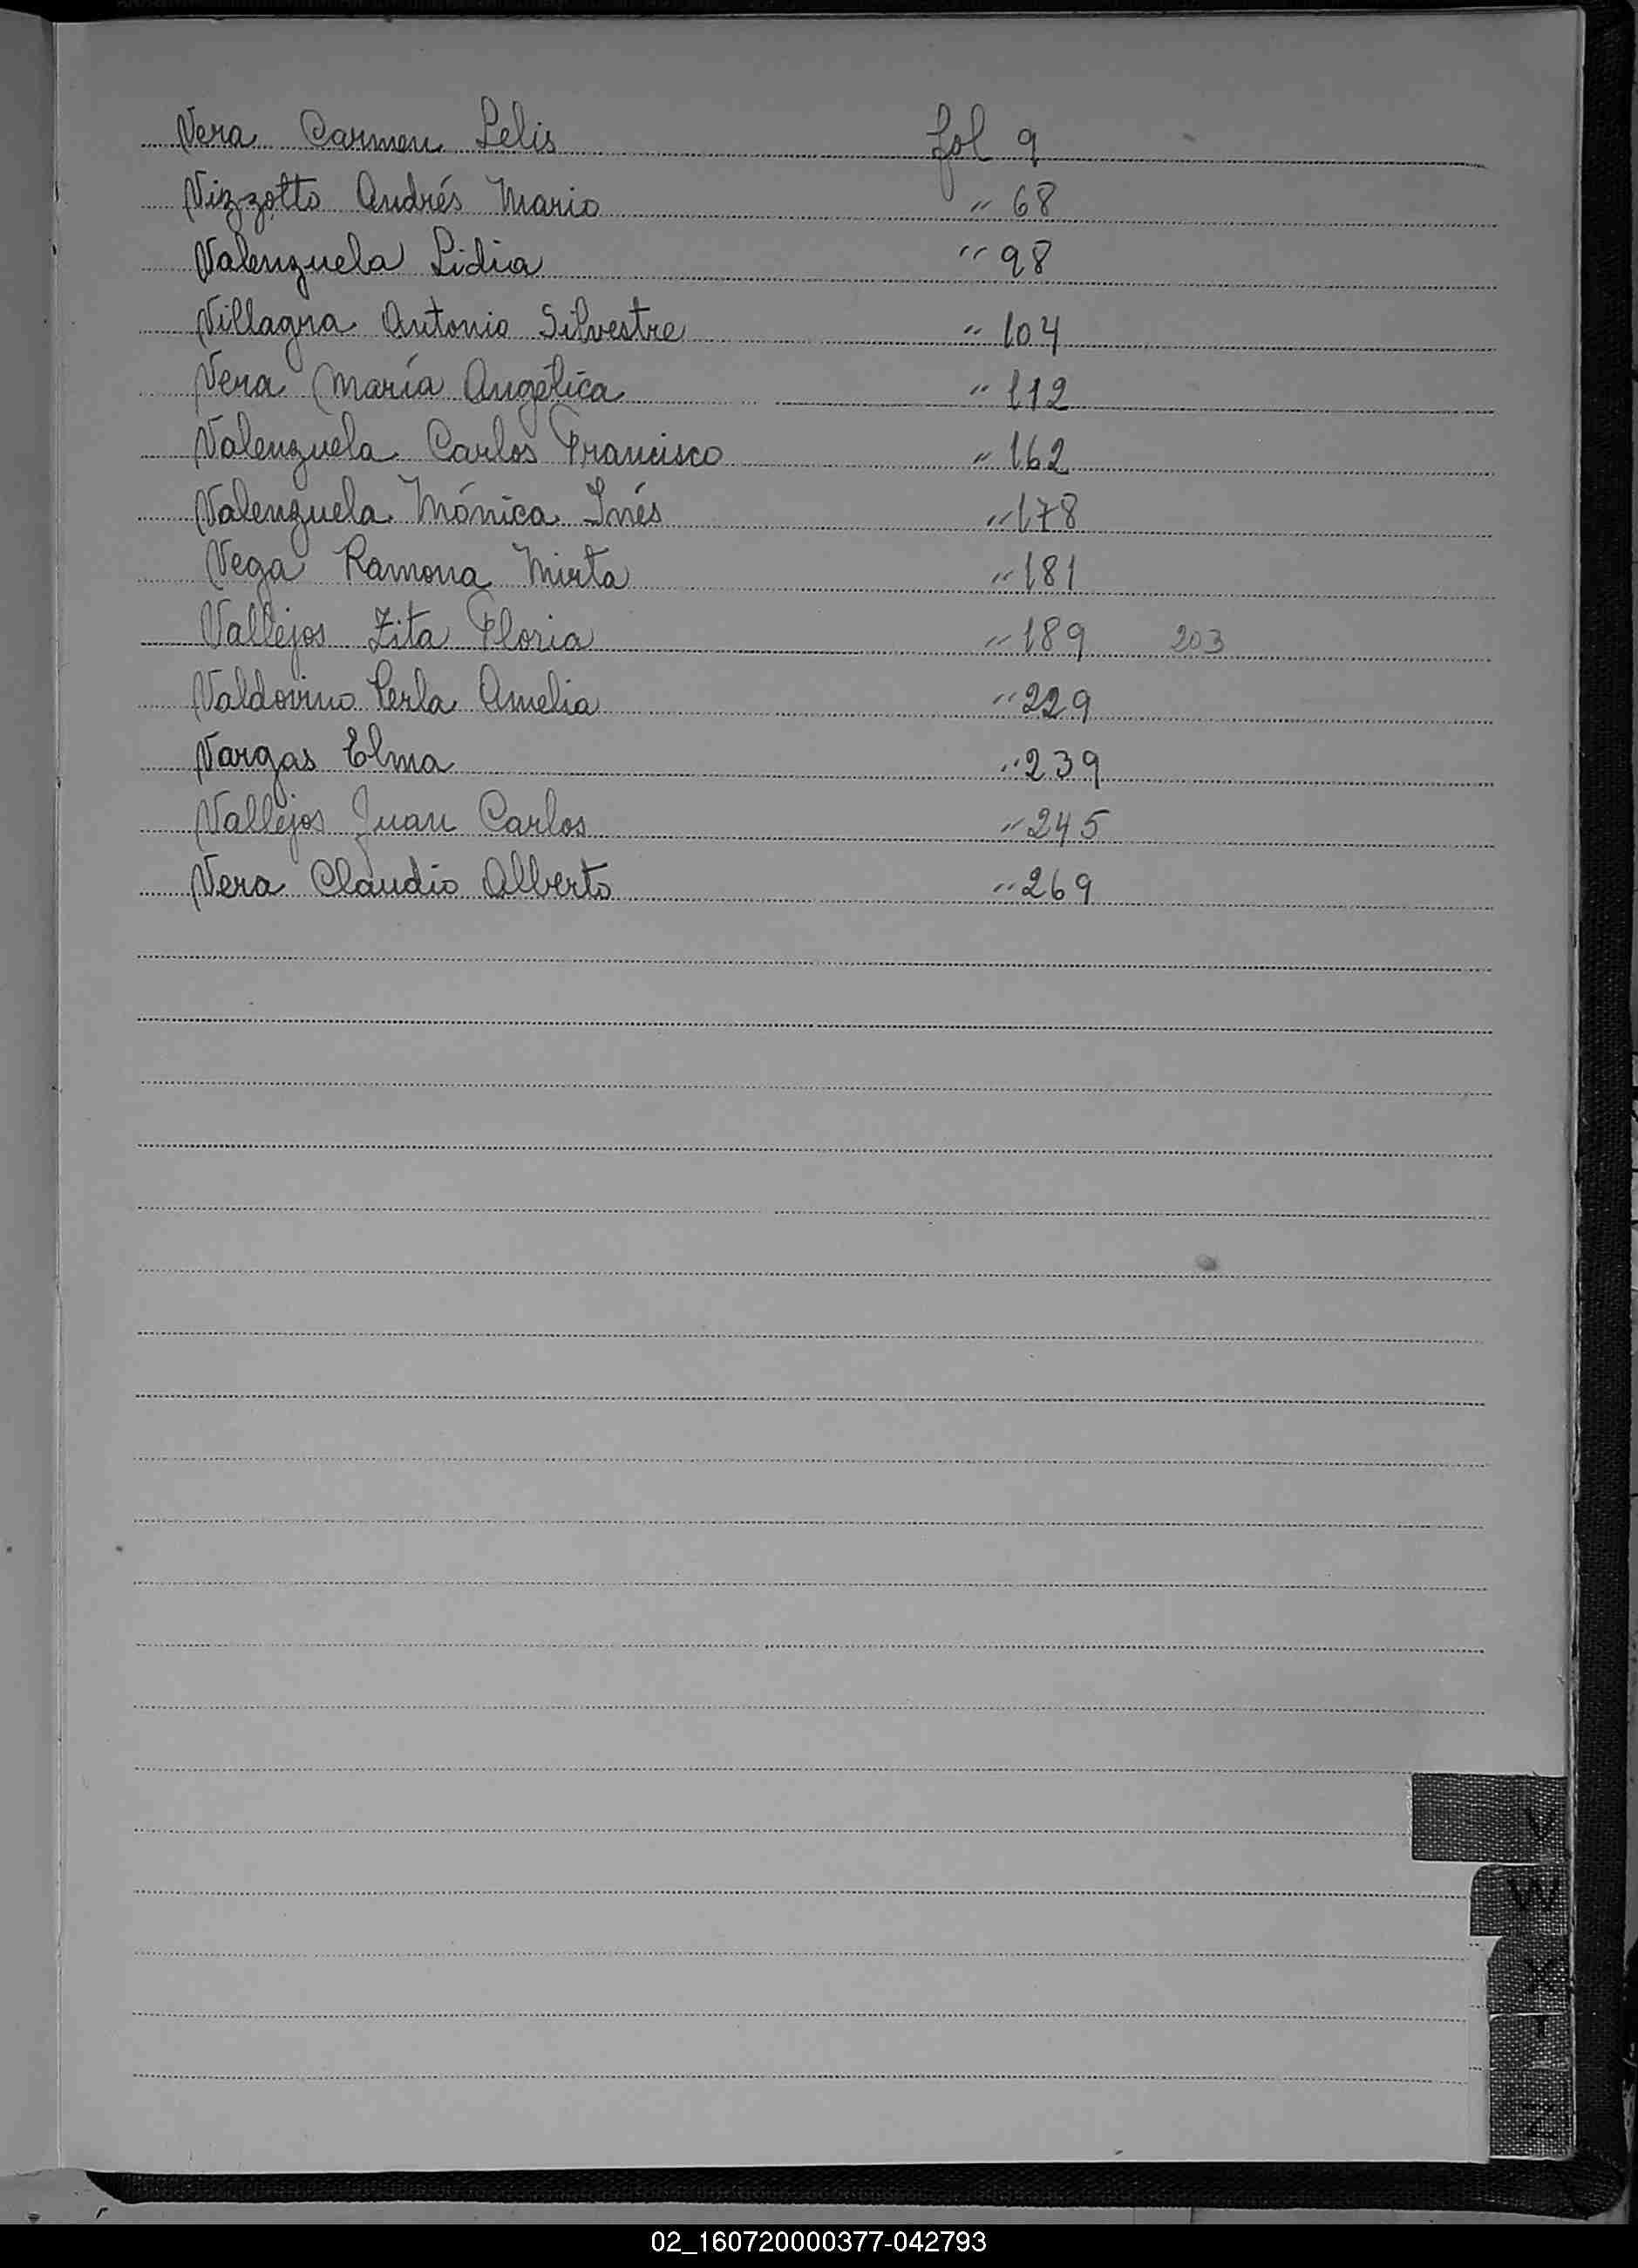 Vera Carmen Lelis fol 9
Vizzotto Andrés Mario " 68
Valenzuela Lidia " 98
Villagra Antonio Silvestre " 104
Vera María Angélica " 112
Valenzuela Carlos Francisco " 162
Valenzuela Mónica Inés " 178
Vega Ramona Mirta " 181
Vallejos Zita Floria " 189 203
Valdovino Perla Amelia " 229
Vargas Elma " 239
Vallejos Juan Carlos " 245
Vera Claudio Alberto " 269
V
W
X
Y
Z
02_160720000377-042793